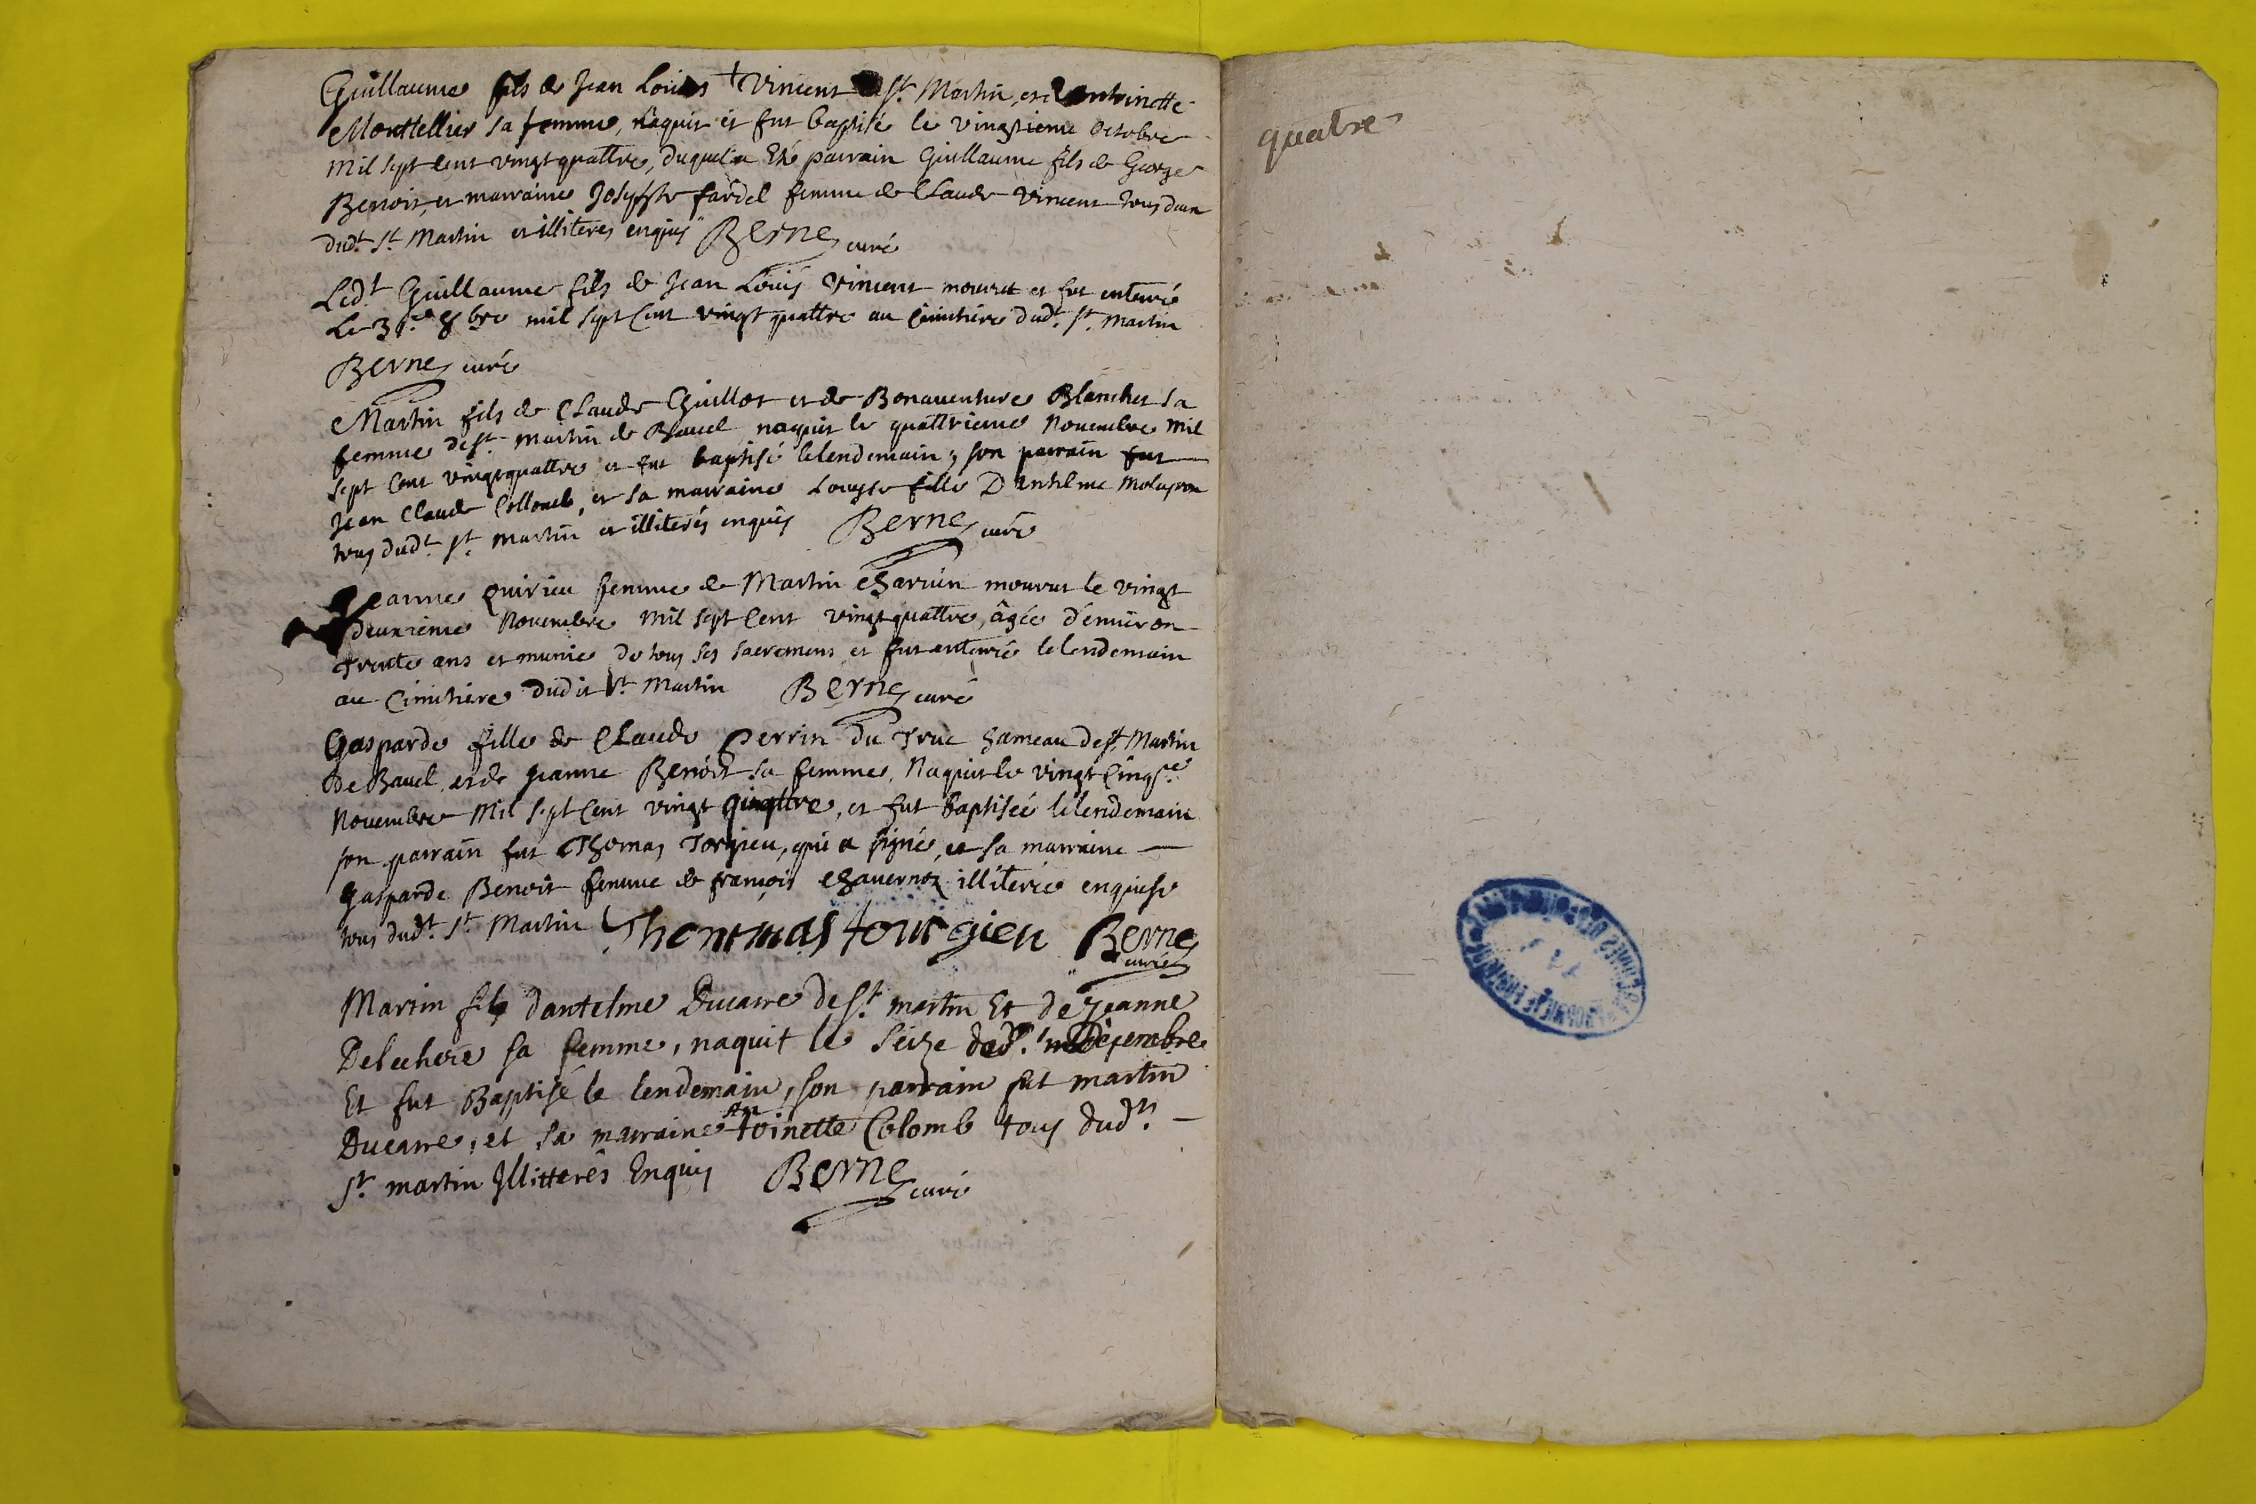 Guillaume fils de Jean Louis + Vincent de St. Martin, et d'Antoinette
Montellier sa femme, naquit et fut baptisé le vingtieme octobre
mil sept cent vingt quattre, duquel a Eté parrain Guillaume fils de George
Benoit, et marraine Josephte fardel femme de Claude Vincent tous
dudt. St. Martin et illiterés enquis Berne curé
Ledt Guillaume fils de Jean Loüis Vincent mourut et fut enterré
Le 31e 8bre mil sept Cent vingt quattre au Cimitiere dudt. St. Martin
Berne curé
Martin fils de Claude Guillot et de Bonauenture Blanchet sa
femme de St. martin de Bauel naquit le quattrieme Nouembre mil
sept Cent vingt quattre et fut baptisé le lendemain, son parrain fut
Jean Claude Collomb, et sa marraine Louyse fille D'Anthelme
tous dudt. St. Martin et illiterés enquis Berne curé
Jeanne Quirieu femme de Martin charuin mourut le vingt
deuxieme Nouembre mil sept Cent vingt quattre, âgée d'enuiron
Trente ans et munie de tous ses sacremens et fut enterrée le lendemain
au Cimitiere dudit St. Martin Berne curé
Gasparde fille de Claude Perrin du Truc hameau de St. Martin
De Bauel, et de Jeanne Benoit sa femme, Naquit le vingt Cinqe.
Nouembre Mil sept Cent vingt quattre, et fut Baptisée le lendemain
son parrain fut Thomas Torgieu, qui a signé, et sa marraine
gasparde Benoit femme de françois chauernoz illiterée enquise
tous dudt. St. Martin Thommas tourgieu Berne
curé
Martin fils dantelme Ducarre de St. martin Et de Jeanne
Delechere sa femme, naquit le seize Décembre
Et fut Baptisé le lendemain, son parrain fut martin
Ducarre, et sa marraine Antoinette Colomb tous dudt.
St. martin Illitterés Enquis Berne curé
quatre